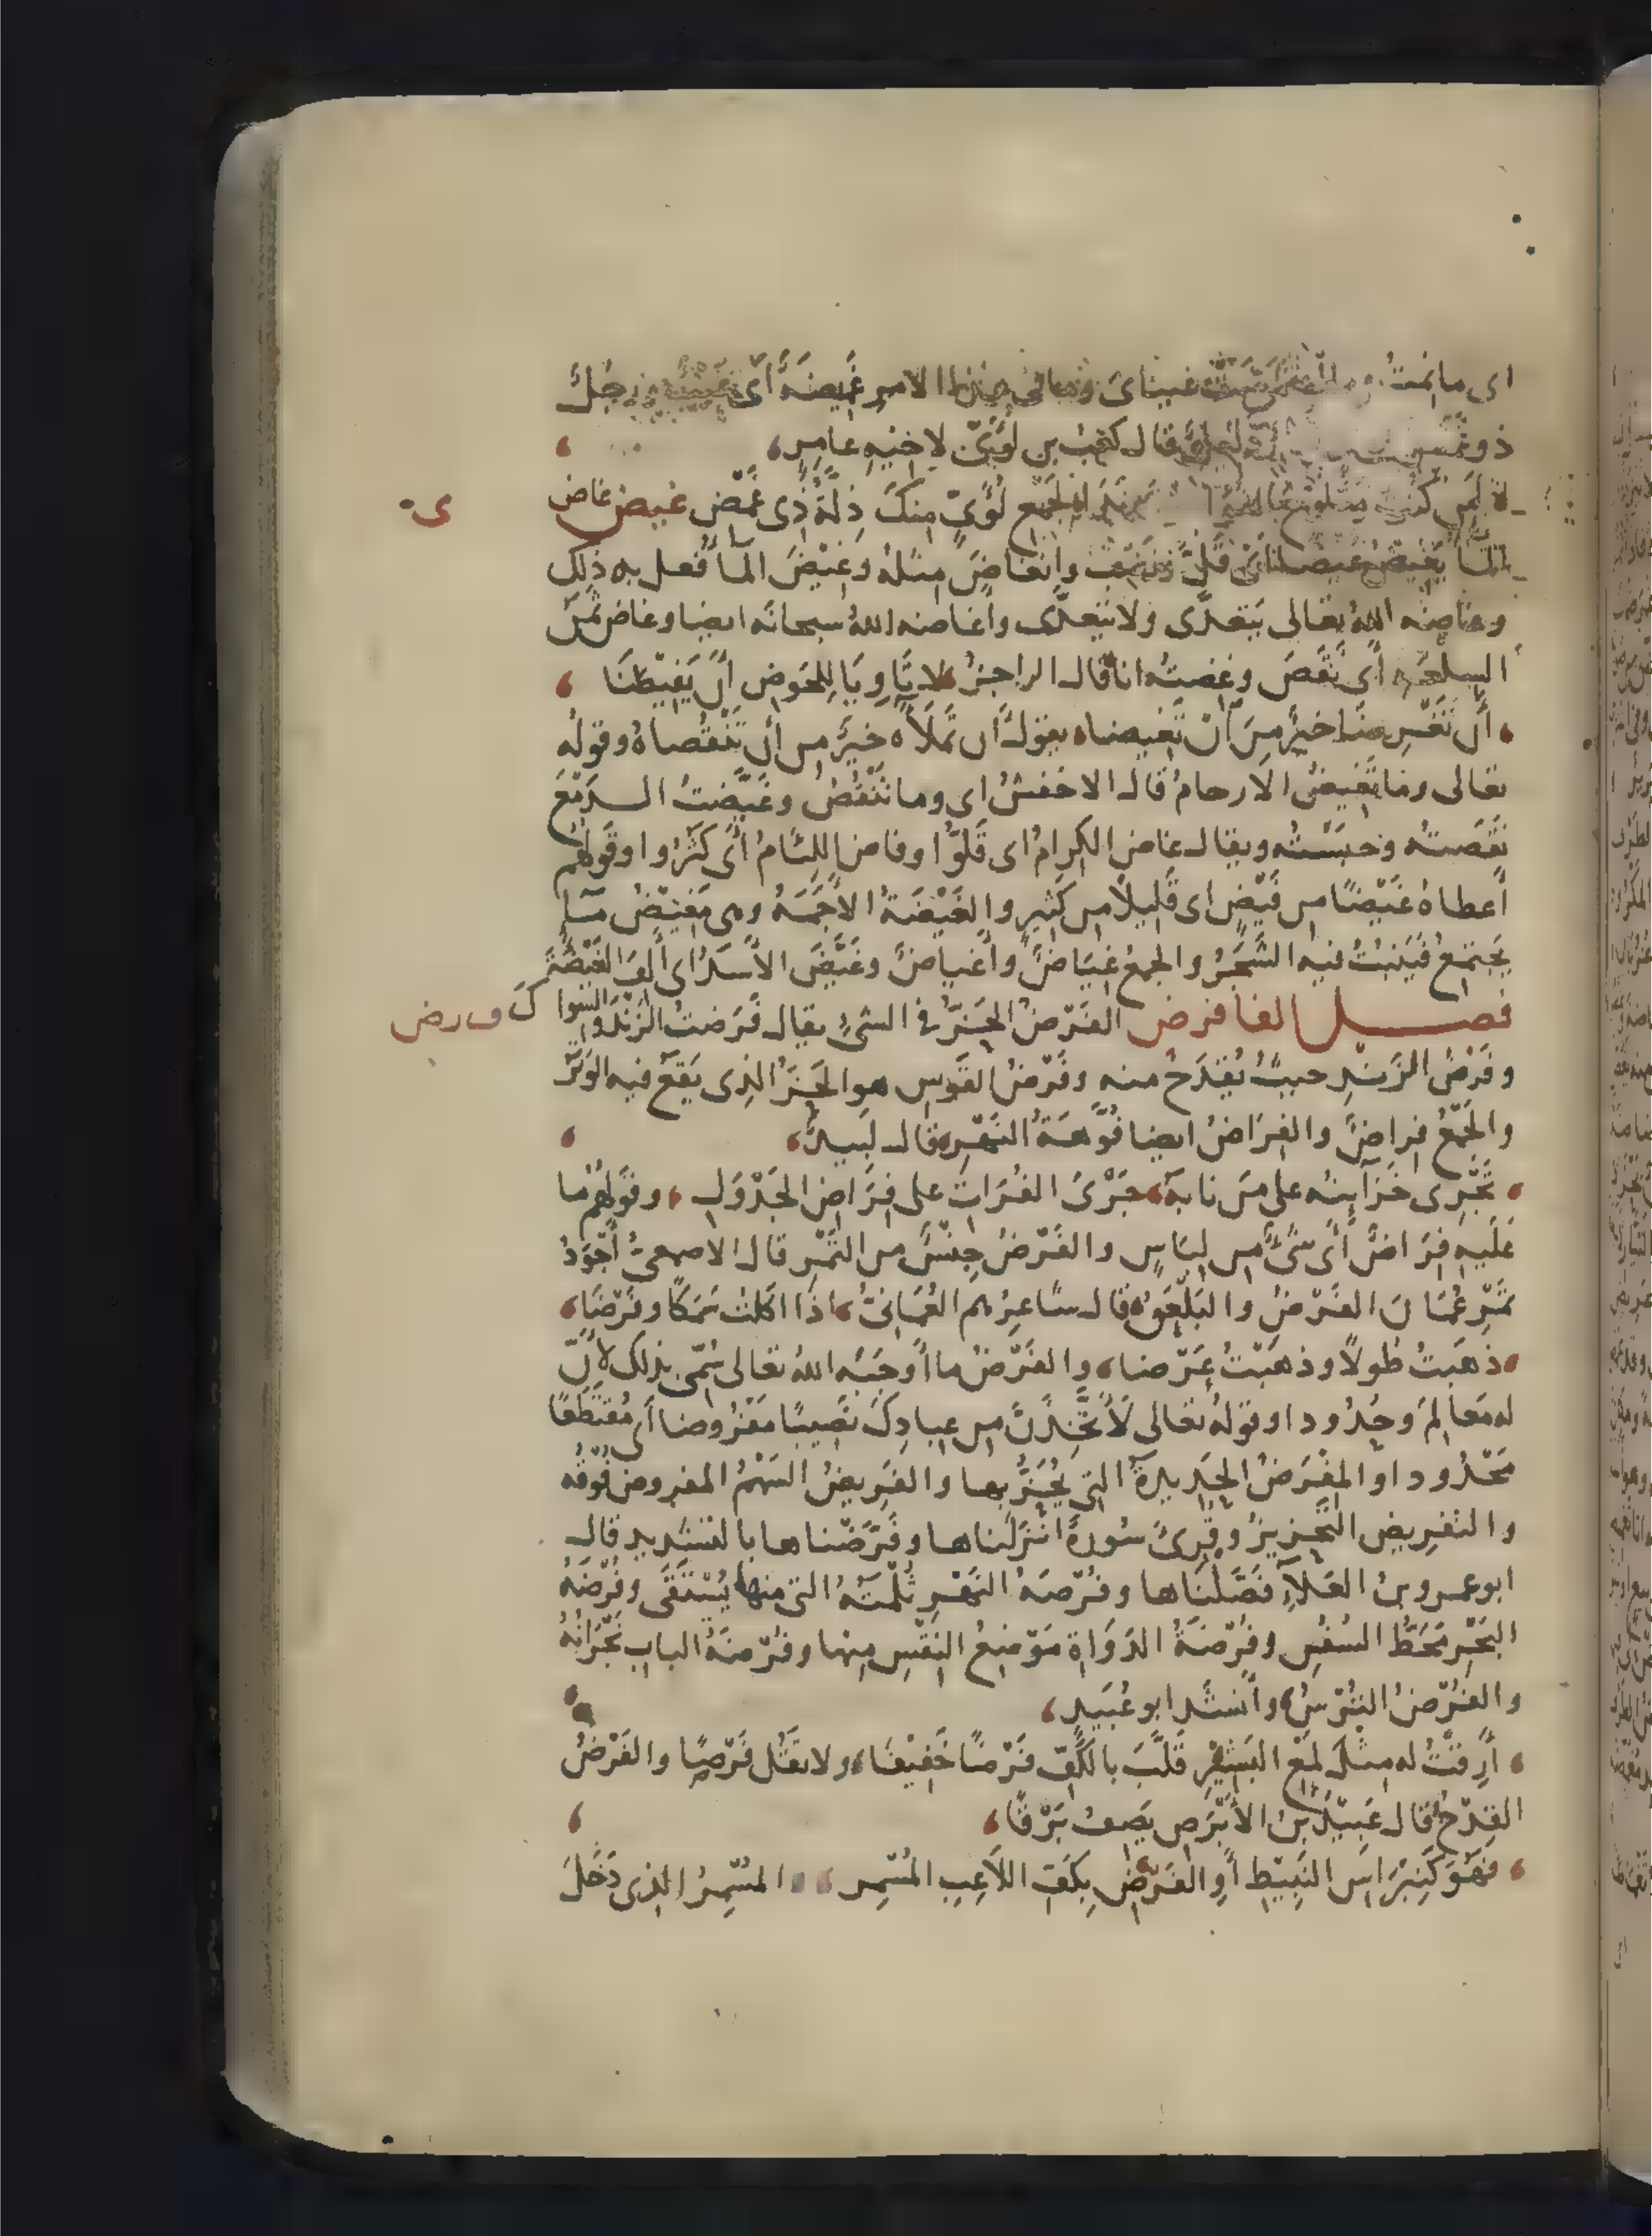 اى ما نمتُ ولا اغتمضت عيناى وما فى هذا الامر غَمِيضَةٌ أى عيبٌ ورجلٌ
ذو غمض قال كعب بن لؤىّ لاخيهِ عامرٍ
لئن كنت لجمع لُؤَىٍّ منكَ ذِلّةُ ذى غَمْض غيض غاض
الما يَغيضُ غيضا اى قَلَّ ونضب وانغاضَ مثله وغِيْضَ الما فُعل به ذلك
وغاضه الله تعالى يتعدّى ولا يتعدّى واغاضه اللهُ سبحانه ايضا وغاض ثمن
السلعه أى نَقَصَ وغِضتُه انا قال الراجز لا تَاوِيَا لِلحَوضِ أَن يَفِيْضَا
أَن تَغْرِضَا خيرٌ مِنَ ان تَغِيضا يقول أَن تَملَآه خيرٌ من أن تَنْقُصاهُ وقوله
تعالى وما تَغِيضُ الارحامُ قال الاخفشُ اى وما تَنْقُصُ وغَيَّضتُ الدمْعَ
نَقَصتُه وحبَسْتُه ويقال غاض الكِرامُ اى قَلّوا وفاض اللِئامُ أى كَثُروا وقولهم
أعطاهُ غَيْضًا من فَيْضٍ اى قَليلاً من كَثيرٍ والغَيْضَةُ الأَجَمَةُ وهى مَغِيْضُ ماءٍ
يَجتمعُ فيَنبُتُ فيه الشَّجَرُ والجمعُ غِيَاضٌ وأغياضٌ وغَيَّضَ الأَسَدُ اى أَلِفَ الغَيْضَةَ
فصل الفا فرض الفَرْضُ الحَزُّ فى الشئِ يقال فَرَضتُ الزَنْدَ والسواك
وفَرْضُ الزَندِ حيثُ يُقْدَحُ منه وفَرْضُ القَوسِ هو الحَزُّ الذى يَقَعُ فيه الوَتَرُ
والجَمْعُ فِراضٌ والفِرَاضُ ايضا فُوَّهَةُ النَهْرِ قال لَبيدٌ
تَجْرِى خَزَاينُه على مَن نابَهُ جَرْىَ الفُرَاتِ على فِرَاضِ الجَدْوَلِ وقولهم ما
عَلَيهِ فِرَاضٌ أى شئٌ من لِبَاسٍ والفَرْضُ جِنْسٌ من التَمْر قال الاصمعىُّ أَجْوَدُ
تَمْرِ عُمَانَ الفَرْضُ والبَلْعَقُ قال شاعِرُهم العُمَانىّ اذا اكلتُ سَمَكًا وفَرْضًا
ذهَبتُ طُولًا وذهَبْتُ عَرْضا والفَرْضُ ما أَوجَبَه اللهُ تعالى سُمّى بذلك لانّ
له مَعَالِمَ وحُدُودا وقولهُ تعالى لَأَتَّخِذَنَّ من عِبادِكَ نَصِيبًا مَفْروضا أى مُقتَطَعًا
مَحْدُودا والمِفْرَضُ الحَدِيدةُ التى يُحَزُّ بها والفَرِيضُ السَهْمُ المفروض فُوقُه
والتفرِيض التَحزِيزُ وقُرِئَ سُورةٌ انزلناها وفَرَّضْناها بالتشديد قال
ابو عمرو بنُ العَلاءِ فَصَّلْنَاها وفُرْضَهُ النَهْرِ ثُلْمَتُهُ التى منها يُسْتَقَى وفُرْضَهُ
البَحْرِ مَحَطُّ السُفُنِ وفُرْضَةُ الدَوَاةِ مَوْضِعُ النِقْسِ منها وفُرْضَةُ الباب نَجْرَانُهُ
والفَرْضُ التُرْسُ وأنشَدَ ابو عُبَيدٍ
أَرِقْتُ له مثلَ لمْعِ البَشِيْرِ قَلَّبَ بالكَفّ فَرْضًا خَفِيْفَا ولا تقُل قَرْصًا والفَرْضُ
القِدْحُ قال عَبِيْدُ بنُ الأبْرَصِ يَصِفُ بَرْقًا
فهْوَ كَنِبْرَاسِ النَبِيْطِ أوِ الفَرْضِ بِكَفِّ اللاعِبِ المُسْمِر المُسْمِرُ الذى دَخَلَ
ى
ف رض